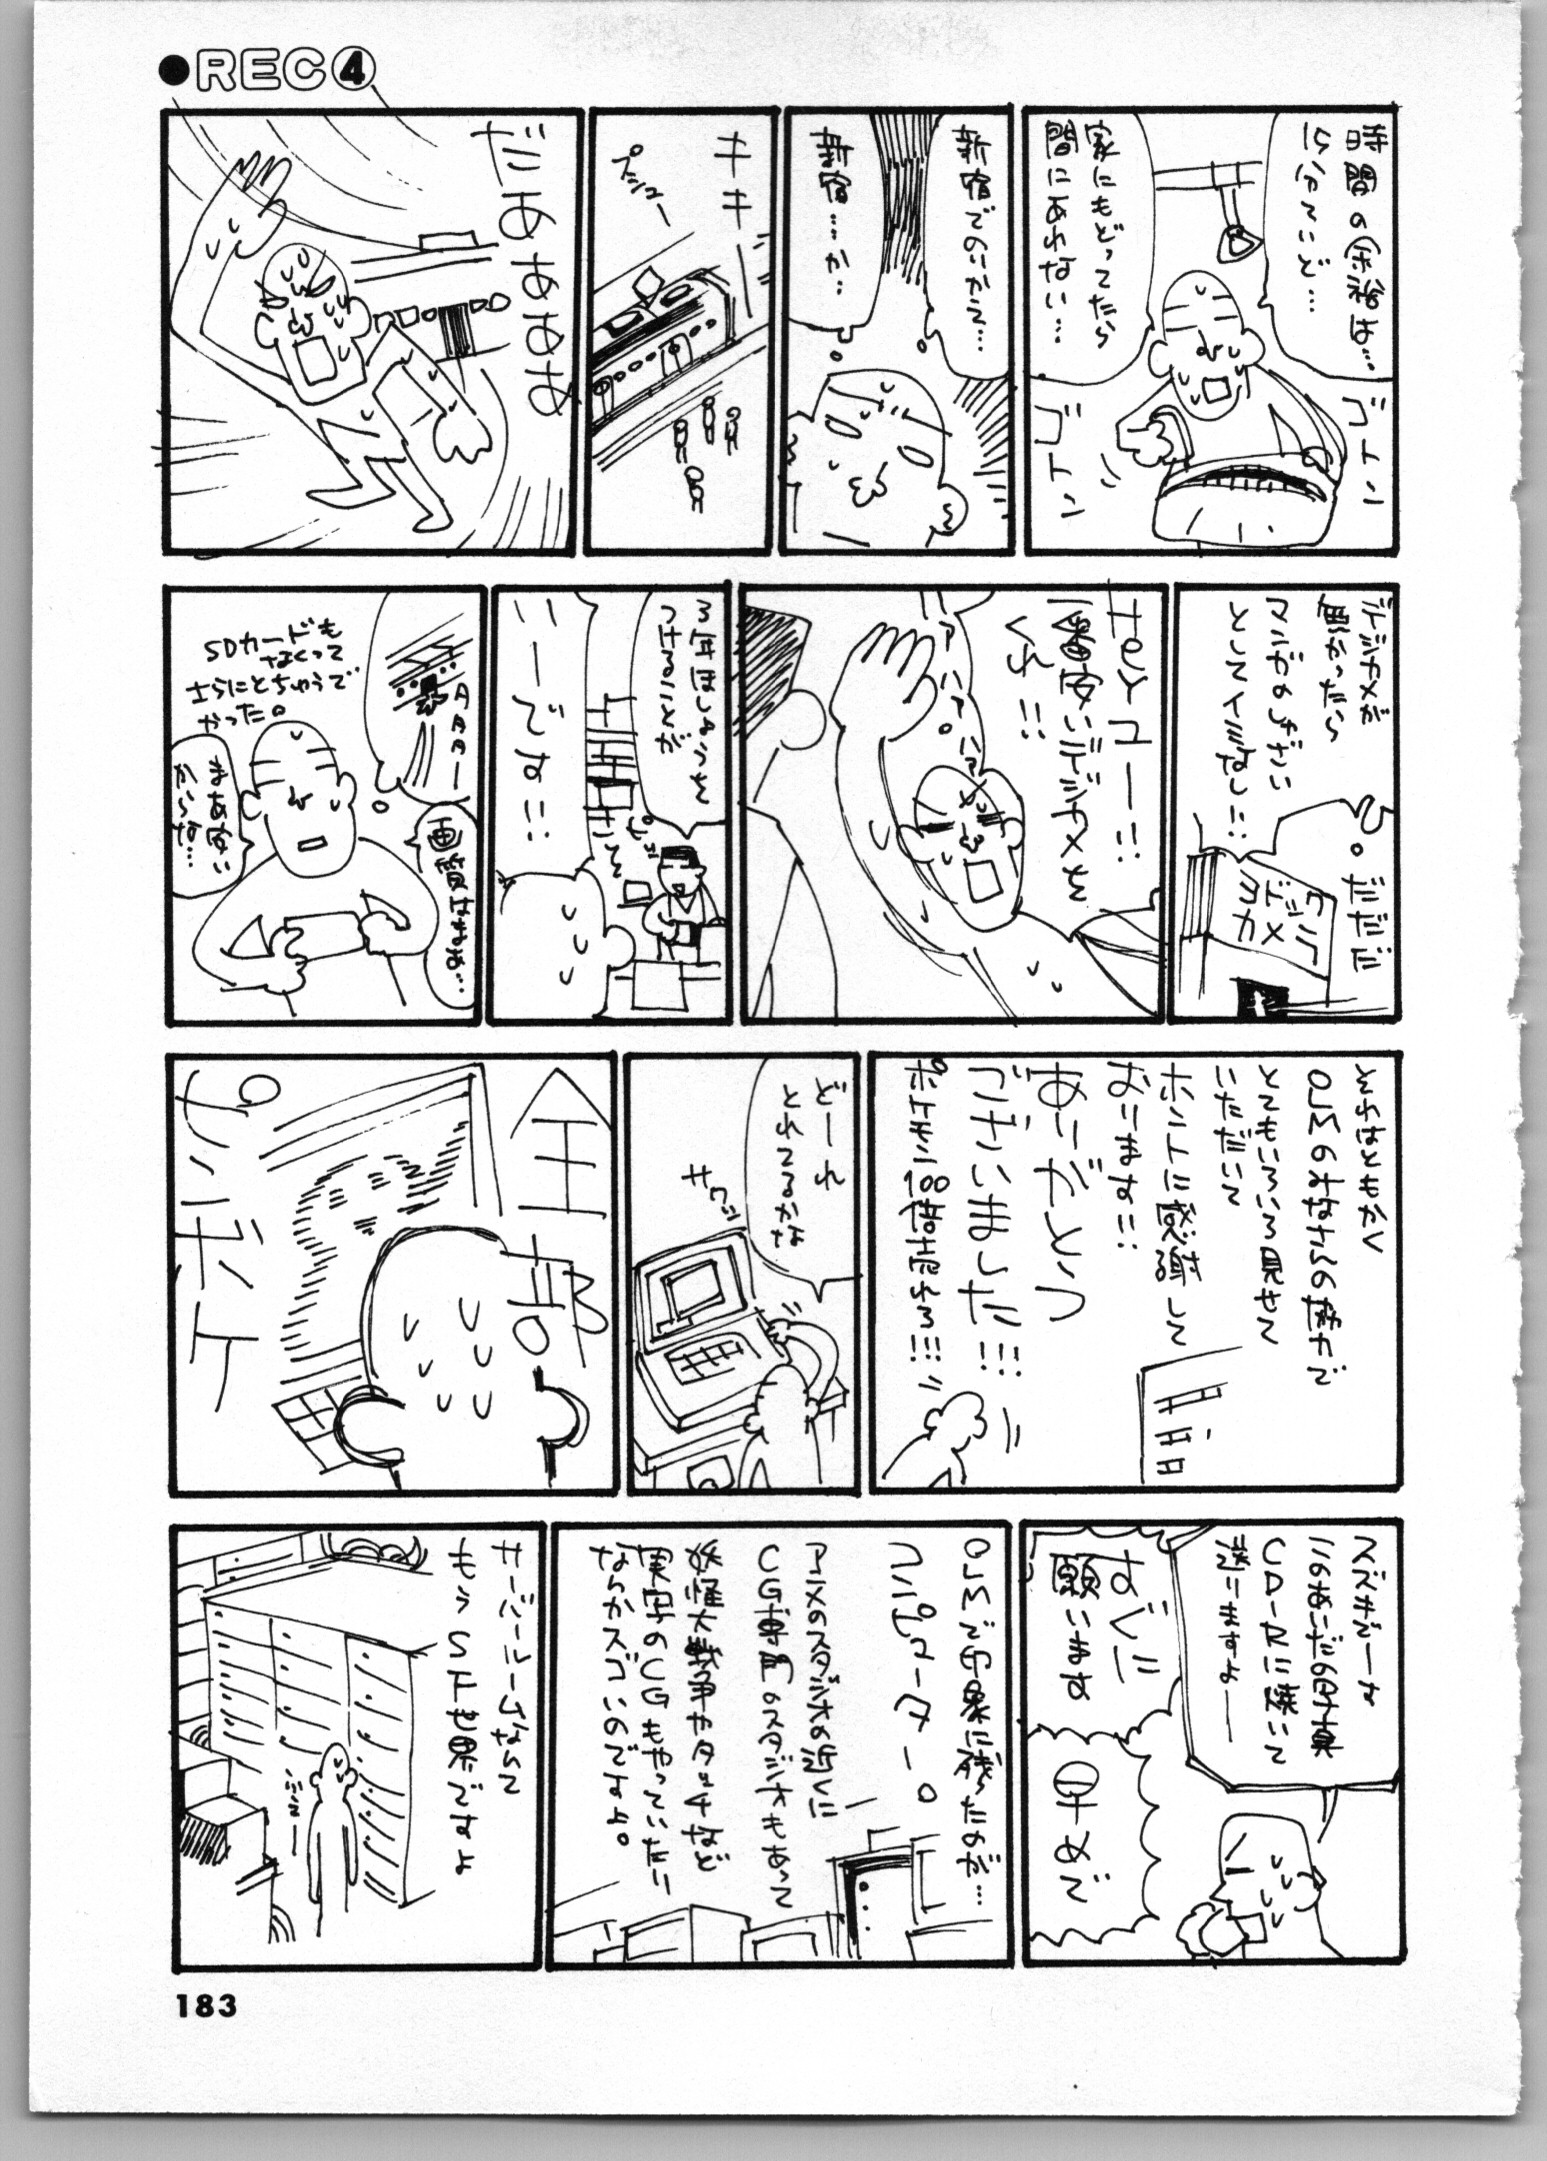 ●REC④
時間の余裕は…
15分ていど…
家にもどってたら
間にあわない…
ゴトン
ゴトン
新宿でのりかえて…
新宿…か…
キキー
プシュー
だぁぁぁぁ
デジカメが
無かったら
マンガのしゅざい
としてイミなし!!
だだだ
ヨドバシ
カメラ
一番安いデジカメを
くれ!!
ハァ
ハァ
ハァ
ハァ
つけることが
いーです!!
タタター
画質はなぁ…
SDカードも
なくって
さらにとちゅうで
かった。
まあ安い
からな…
それはともかく
OLMのみなさんの協力で
とてもいろいろ見せて
いただいて
ホントに感謝して
おります!!
ありがとう
ございました!!!
ポケモン100倍売れろ!!!
どーれ
とれてるかな
全部
ピンボケ
スズキさーな
このあいだの写真
CD-Rに焼いて
送りますよ――
すぐに
願います
早めで
OLMで印象に残ったのが…
コンピューター。
アニメのスタジオの近くに
CG専門のスタジオもあって
妖怪大戦争やタッチなど
実写のCGもやっていたり
なんかスゴいのですよ。
サーバールームなんて
もうSF世界ですよ
183